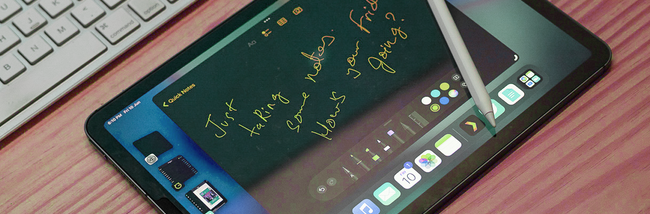 Quick Notes
Just
taking
some notes.
How's your Frid
going?
10